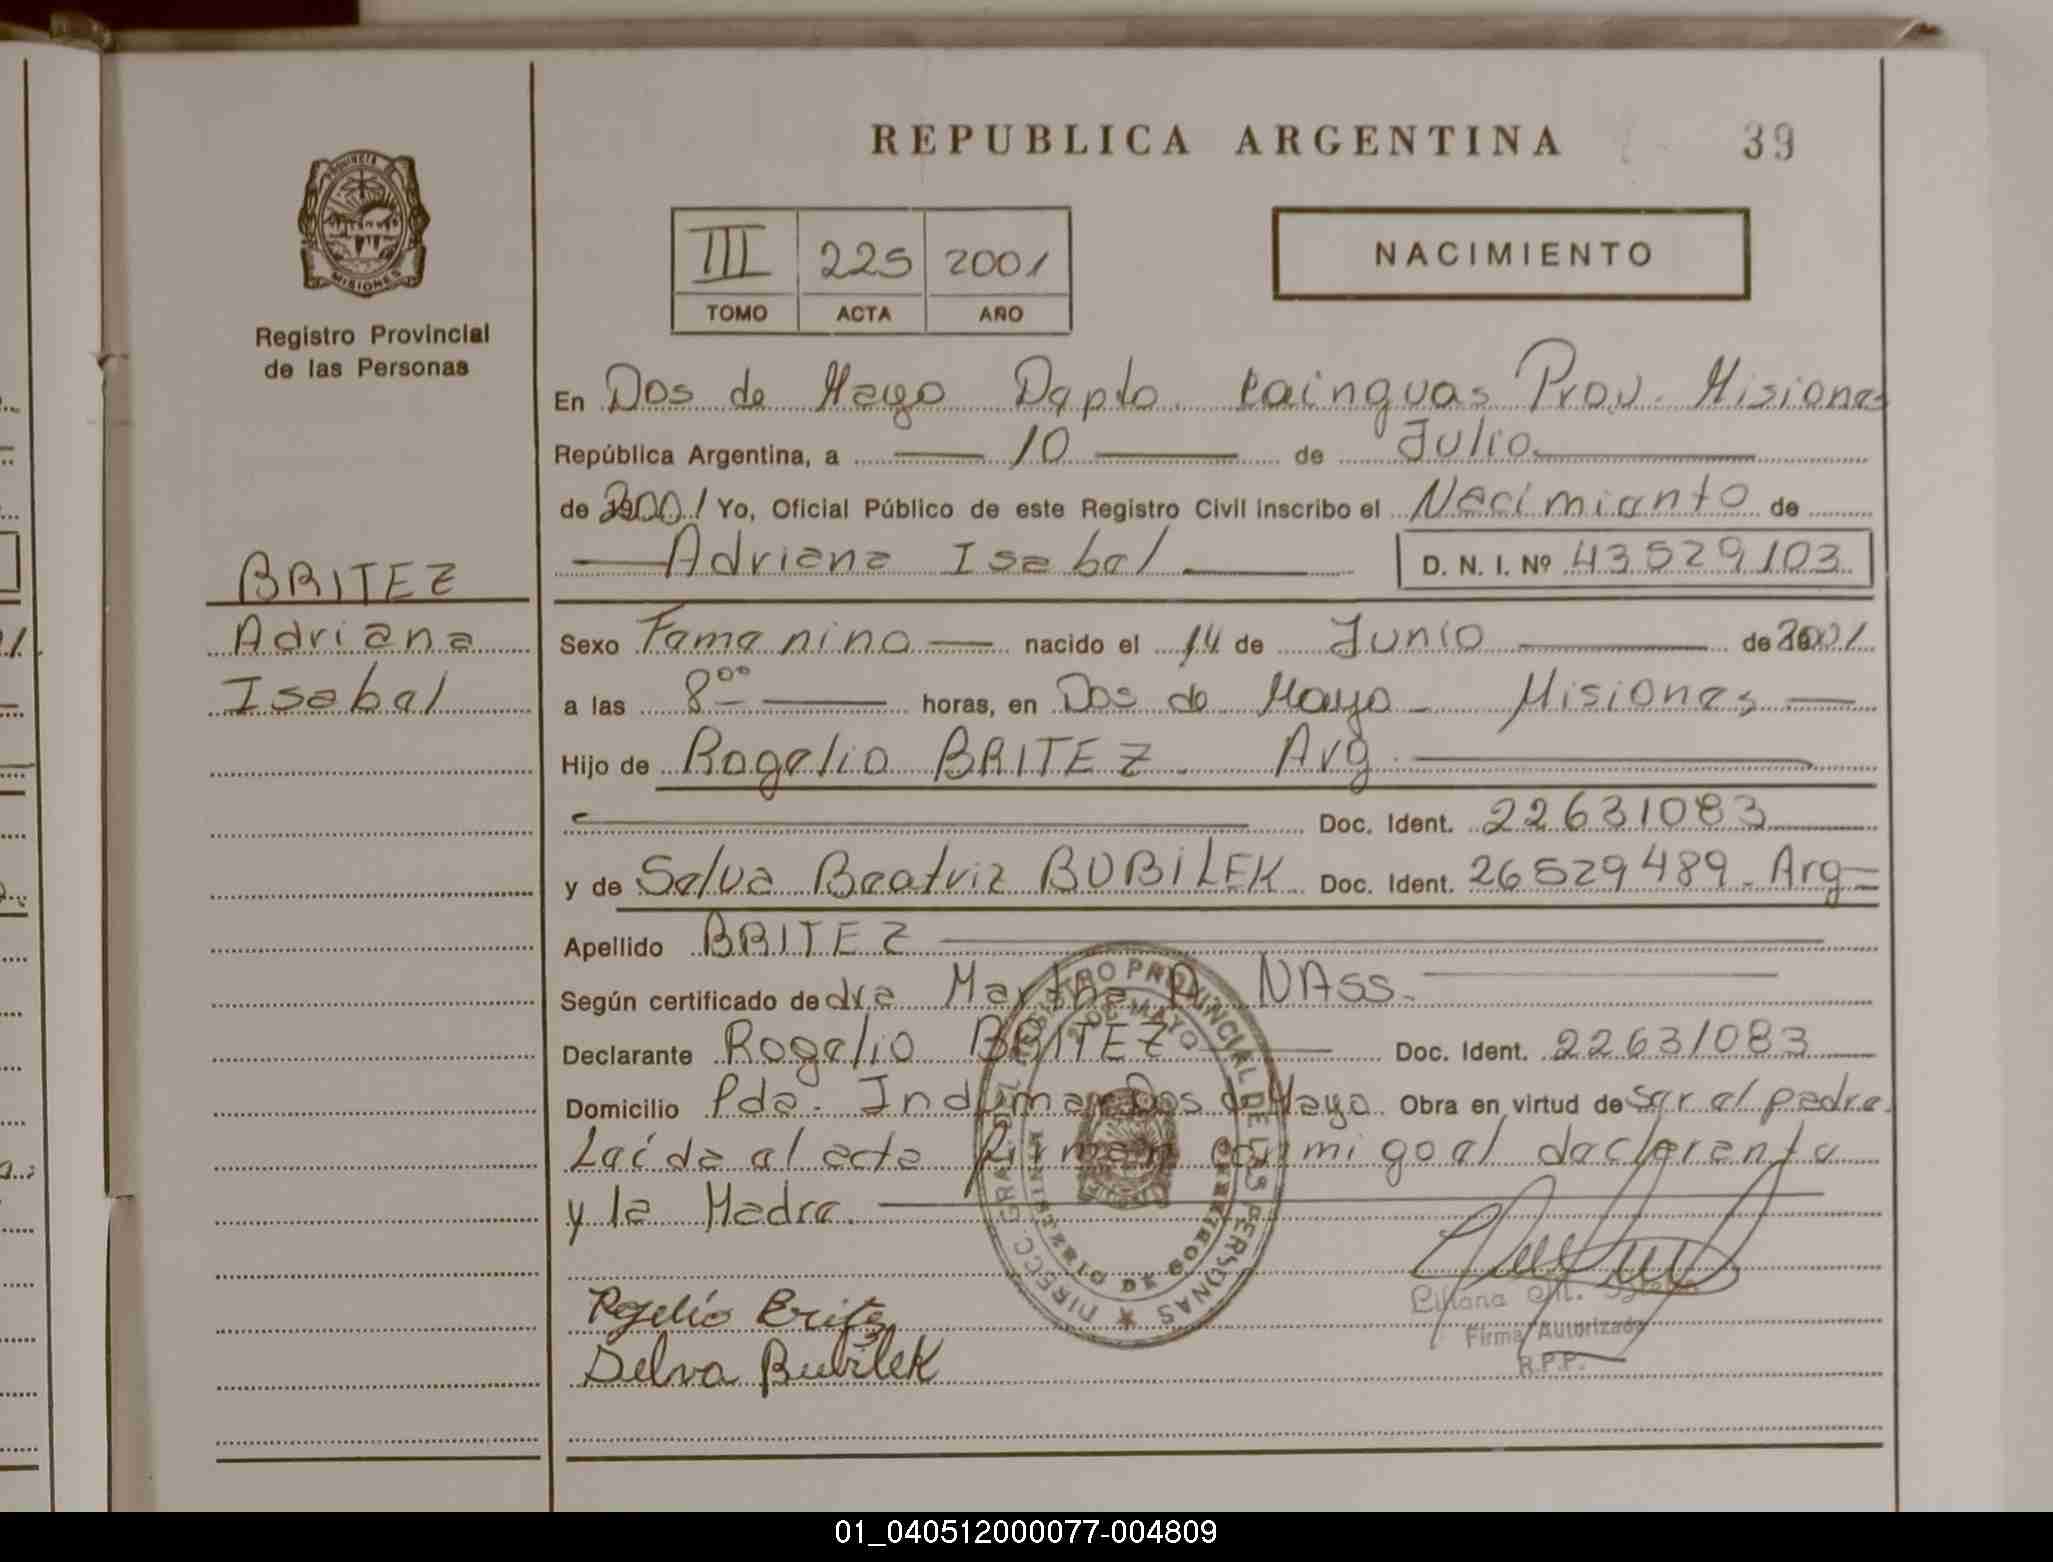 REPUBLICA ARGENTINA
39
PROVINCIA DE
MISIONES
Registro Provincial
de las Personas
III 225 2001
TOMO ACTA AÑO
NACIMIENTO
En Dos de Mayo Dpto. Cainguas Prov. Misiones
República Argentina, a 10 de Julio
de 2001 Yo, Oficial Público de este Registro Civil inscribo el Nacimiento de
Adriana Isabel D. N. I. Nº 43529103
BRITEZ
Adriana
Isabel
Sexo Femenino nacido el 14 de Junio de 2001
a las 8⁰⁰ horas, en Dos de Mayo - Misiones
Hijo de Rogelio BRITEZ - Arg.
Doc. Ident. 22631083
y de Selva Beatriz BUBILEK Doc. Ident. 26529489 - Arg
Apellido BRITEZ
Según certificado de dra Martha A. NAss.
Declarante Rogelio BRITEZ Doc. Ident. 22631083
Domicilio Pda. Indumar Dos de Mayo Obra en virtud de ser el padre.
Leída el acta firman conmigo el declarante
y la Madre.
DIRECC. GRAL. DEL REGISTRO PROVINCIAL DE LAS PERSONAS
DOS DE MAYO
MINISTERIO DE GOBIERNO
Rogelio Britez
Selva Bubilek
Liliana
Firma Autorizada
R.P.P.
01_040512000077-004809